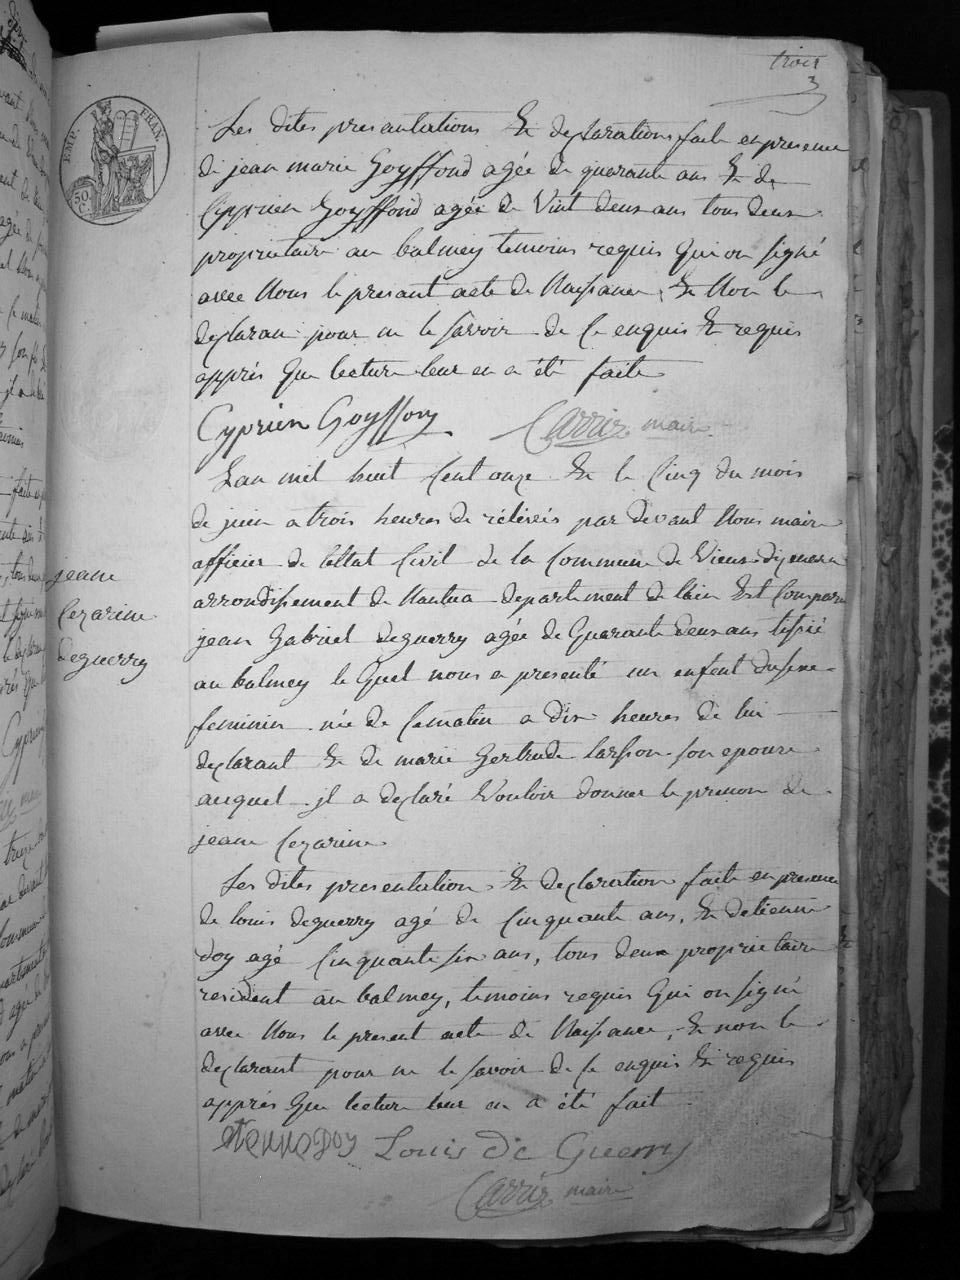 trois
3
EMP. FRAN.
50 C.
Les dites presantations & declarations faite en presence
de jean marie Goyffond agée de quarante ans & de
Cyprien Goyffond agée de Vint deux ans tous deux
proprietaire au balmey temoins requis qui on signé
avec Nous le presant acte de Naissance, & Non le
declaran pour ne le savoir de ce enquis & requis
apprés que lecture leur en a été faite
Cyprien Goyffon
Carrier maire
Lan mil huit Cent onze & le Cinq du mois
de juin a trois heures de relévés par devant Nous maire
officier de lettat Civil de la Commune de Vieu-dizenave
arrondissement de Nantua departement de lain Est Comparu
jean Gabriel deguerry agée de Quarante deux ans
au balmey le quel nous a presenté un enfant du sexe
feminin née de ce matin a dix heures de lui
declarant & de marie Gertrude son epouse
auquel il a declaré Vouloir donner le prenom de
jeane Cezarine
jeane
Cezarine
deguerry
Les dites presentation & declaration faite en presence
de louis deguerry agé de Cinquante ans, & detienne
doy agé Cinquante six ans, tous deux proprietaire
resident au balmey, temoins requis qui on signé
avec Nous le present acte de Naissance, & non le
declarant pour ne le savoir de ce enquis & requis
apprés que lecture leur en a été fait
etienne Doy Louis de Guerry
Carrier maire